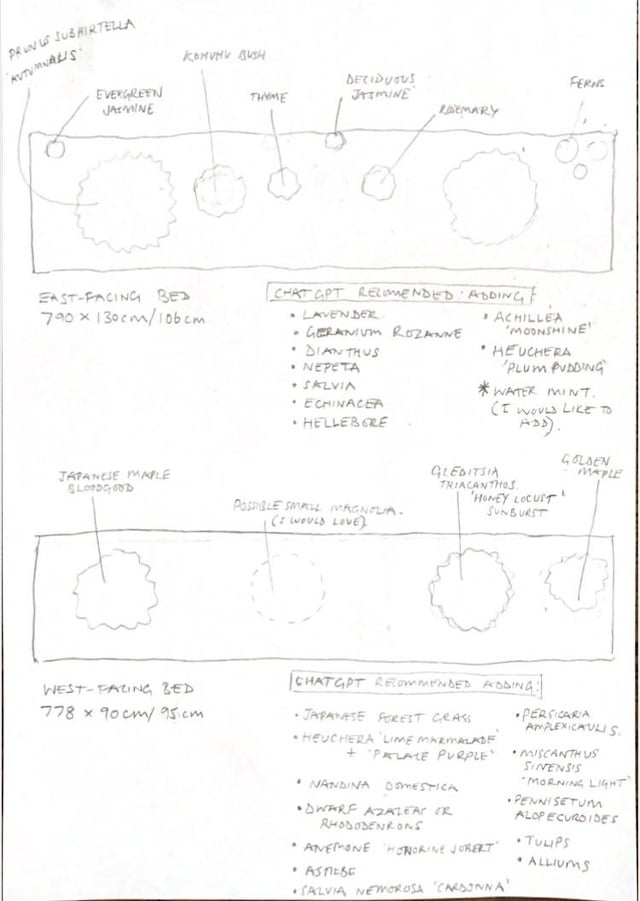 PRUNUS SUBHIRTELLA
'AUTUMNALIS'
EVERGREEN
JASMINE
KOHUHU BUSH
THYME
DECIDUOUS
JASMINE
ROSEMARY
FERNS
EAST-FACING BED
790 x 130cm/106cm
CHATGPT RECOMENDED ADDING:
• LAVENDER
• GERANIUM ROZANNE
• DIANTHUS
• NEPETA
• SALVIA
• ECHINACEA
• HELLEBORE
• ACHILLEA
'MOONSHINE'
• HEUCHERA
'PLUM PUDDING'
* WATER MINT.
(I WOULD LIKE TO
ADD).
JAPANESE MAPLE
BLOODGOOD
POSSIBLE SMALL MAGNOLIA.
(I WOULD LOVE)
GLEDITSIA
TRIACANTHOS
'HONEY LOCUST'
SUNBURST
GOLDEN
MAPLE
WEST-FACING BED
778 x 90cm/95cm
CHATGPT RECOMMENDED ADDING:
• JAPANESE FOREST GRASS
• HEUCHERA 'LIME MARMALADE'
+ 'PALACE PURPLE'
• NANDINA DOMESTICA
• DWARF AZALEAS OR
RHODODENRONS
• ANEMONE 'HONORINE JOBERT'
• ASTILBE
• SALVIA NEMOROSA 'CARDONNA'
• PERSICARIA
AMPLEXICAULIS.
• MISCANTHUS
SINENSIS
'MORNING LIGHT'
• PENNISETUM
ALOPECUROIDES
• TULIPS
• ALLIUMS